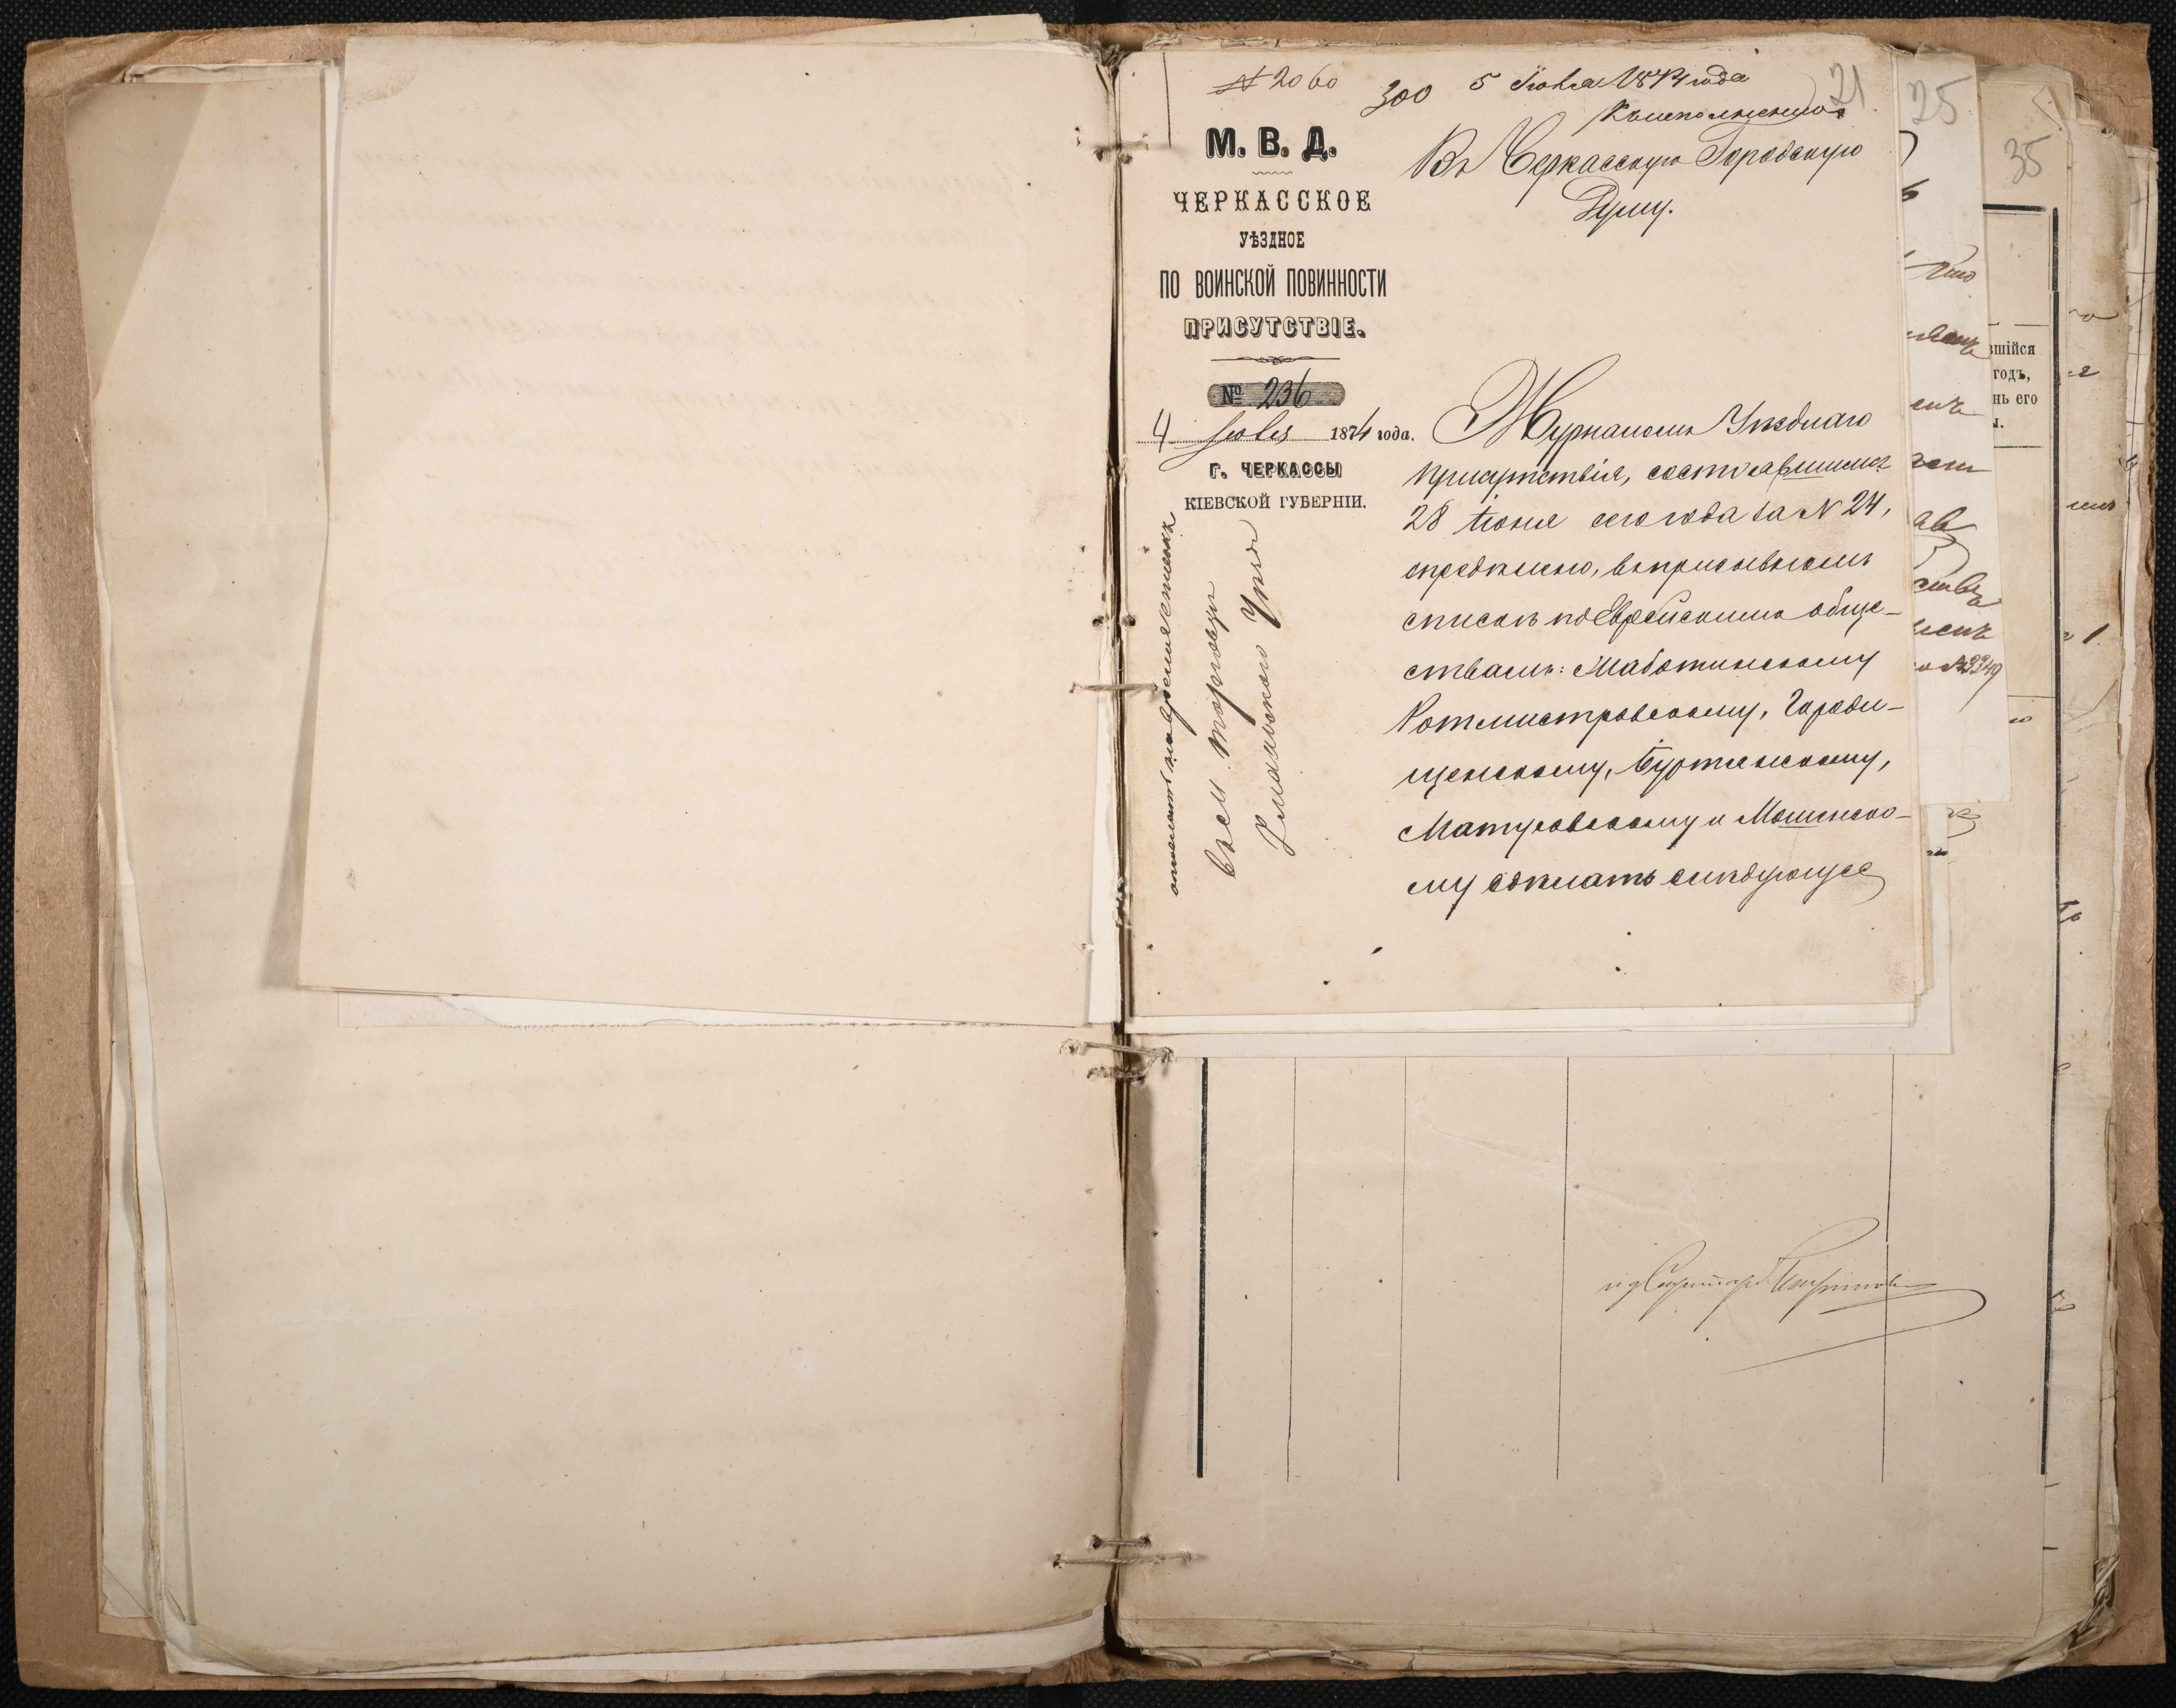 № 2060
300 5 Іюля 1874 года
Къ исполненію
21
М. В. Д.
ЧЕРКАССКОЕ
УѢЗДНОЕ
ПО ВОИНСКОЙ ПОВИННОСТИ
ПРИСУТСТВІЕ.
№ 236
4 Іюля 1874 года.
Г. ЧЕРКАССЫ
КІЕВСКОЙ ГУБЕРНІИ.
Въ Черкасскую Городскую
Думу.
Журналомъ Уѣзднаго
присутствія, состоявшимся
28 іюня сего года за № 24,
опредѣлено, въ призывномъ
списокъ по Еврейскимъ обще-
ствамъ: Мабатинскому
Ротмистровскому, Городи-
щенскому, Буртянскому,
Матусовскому и Мошнско-
му сдѣлать слѣдующее
25
35
вшійся
годъ,
нь его
№3349
и д Секретаря